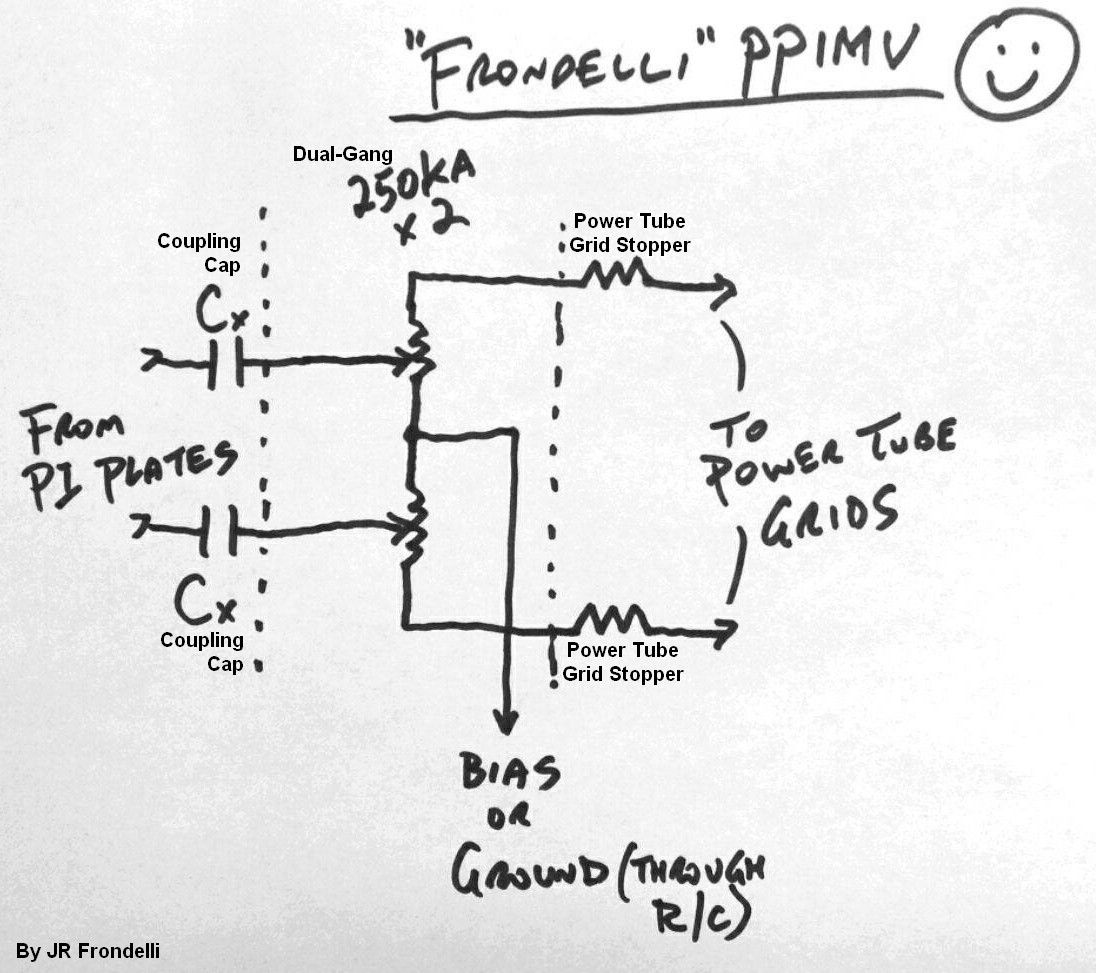 "FRONDELLI" PPIMV
Dual-Gang
250KA
x 2
Coupling
Cap
Cx
Power Tube
Grid Stopper
FROM
PI PLATES
TO
POWER TUBE
GRIDS
Cx
Coupling
Cap
Power Tube
Grid Stopper
BIAS
OR
GROUND (THROUGH
R/C)
By JR Frondelli